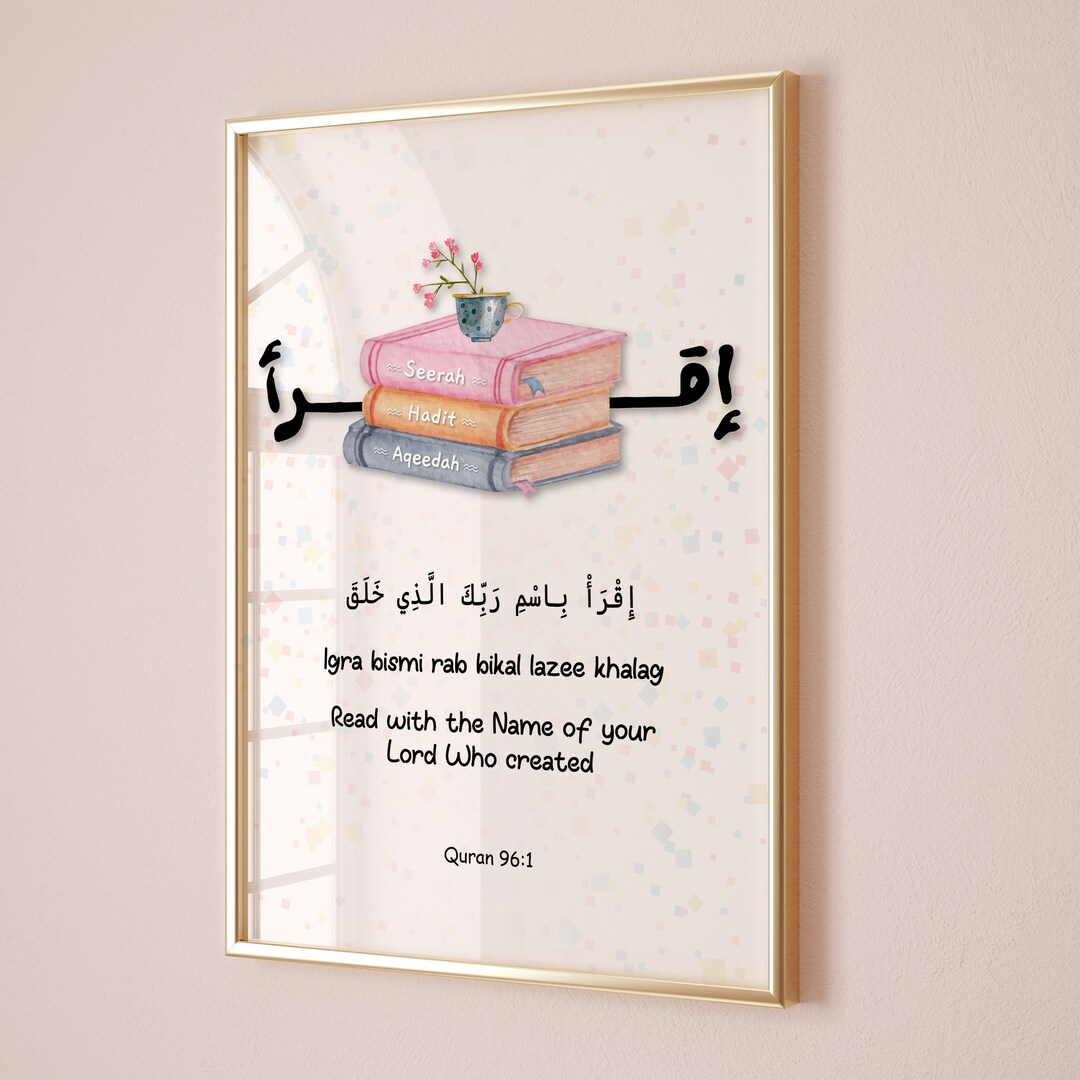 إقـــرأ
Seerah
Hadit
Aqeedah
إِقْرَأْ بِاسْمِ رَبِّكَ الَّذِي خَلَقَ
Igra bismi rab bikal lazee khalag
Read with the Name of your
Lord Who created
Quran 96:1